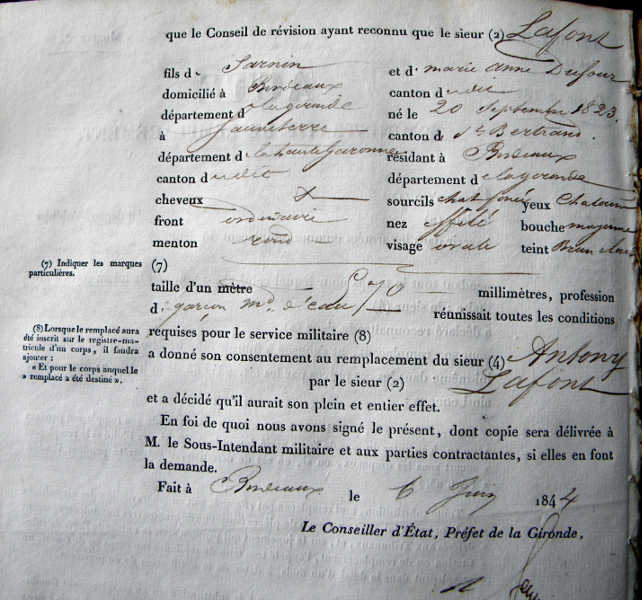 que le Conseil de révision ayant reconnu que le sieur (2) Lafont
fils d Sarnin et d marie anne Dufour
domicilié à Bordeaux canton d udit
département d la gironde né le 20 Septembre 1823
à Sauveterre canton d St Bertrand
département d la haute Garonne résidant à Bordeaux
canton d udit département d la gironde
cheveux sourcils chat foncé yeux Chatain
front ordinaire nez effilé bouche moyenne
menton rond visage ovale teint Brun clair
(7) Indiquer les marques particulières.
(7)
taille d'un mètre 670 millimètres, profession
d garçon md d'eau réunissait toutes les conditions
requises pour le service militaire (8)
(8) Lorsque le remplacé aura
été inscrit sur le registre-ma-
tricule d'un corps, il faudra
ajouter :
« Et pour le corps auquel le
« remplacé a été destiné ».
a donné son consentement au remplacement du sieur (4) Antony
par le sieur (2) Lafont
et a décidé qu'il aurait son plein et entier effet.
En foi de quoi nous avons signé le présent, dont copie sera délivrée à
M. le Sous-Intendant militaire et aux parties contractantes, si elles en font
la demande.
Fait à Bordeaux le 6 Juin 1844
Le Conseiller d'État, Préfet de la Gironde,